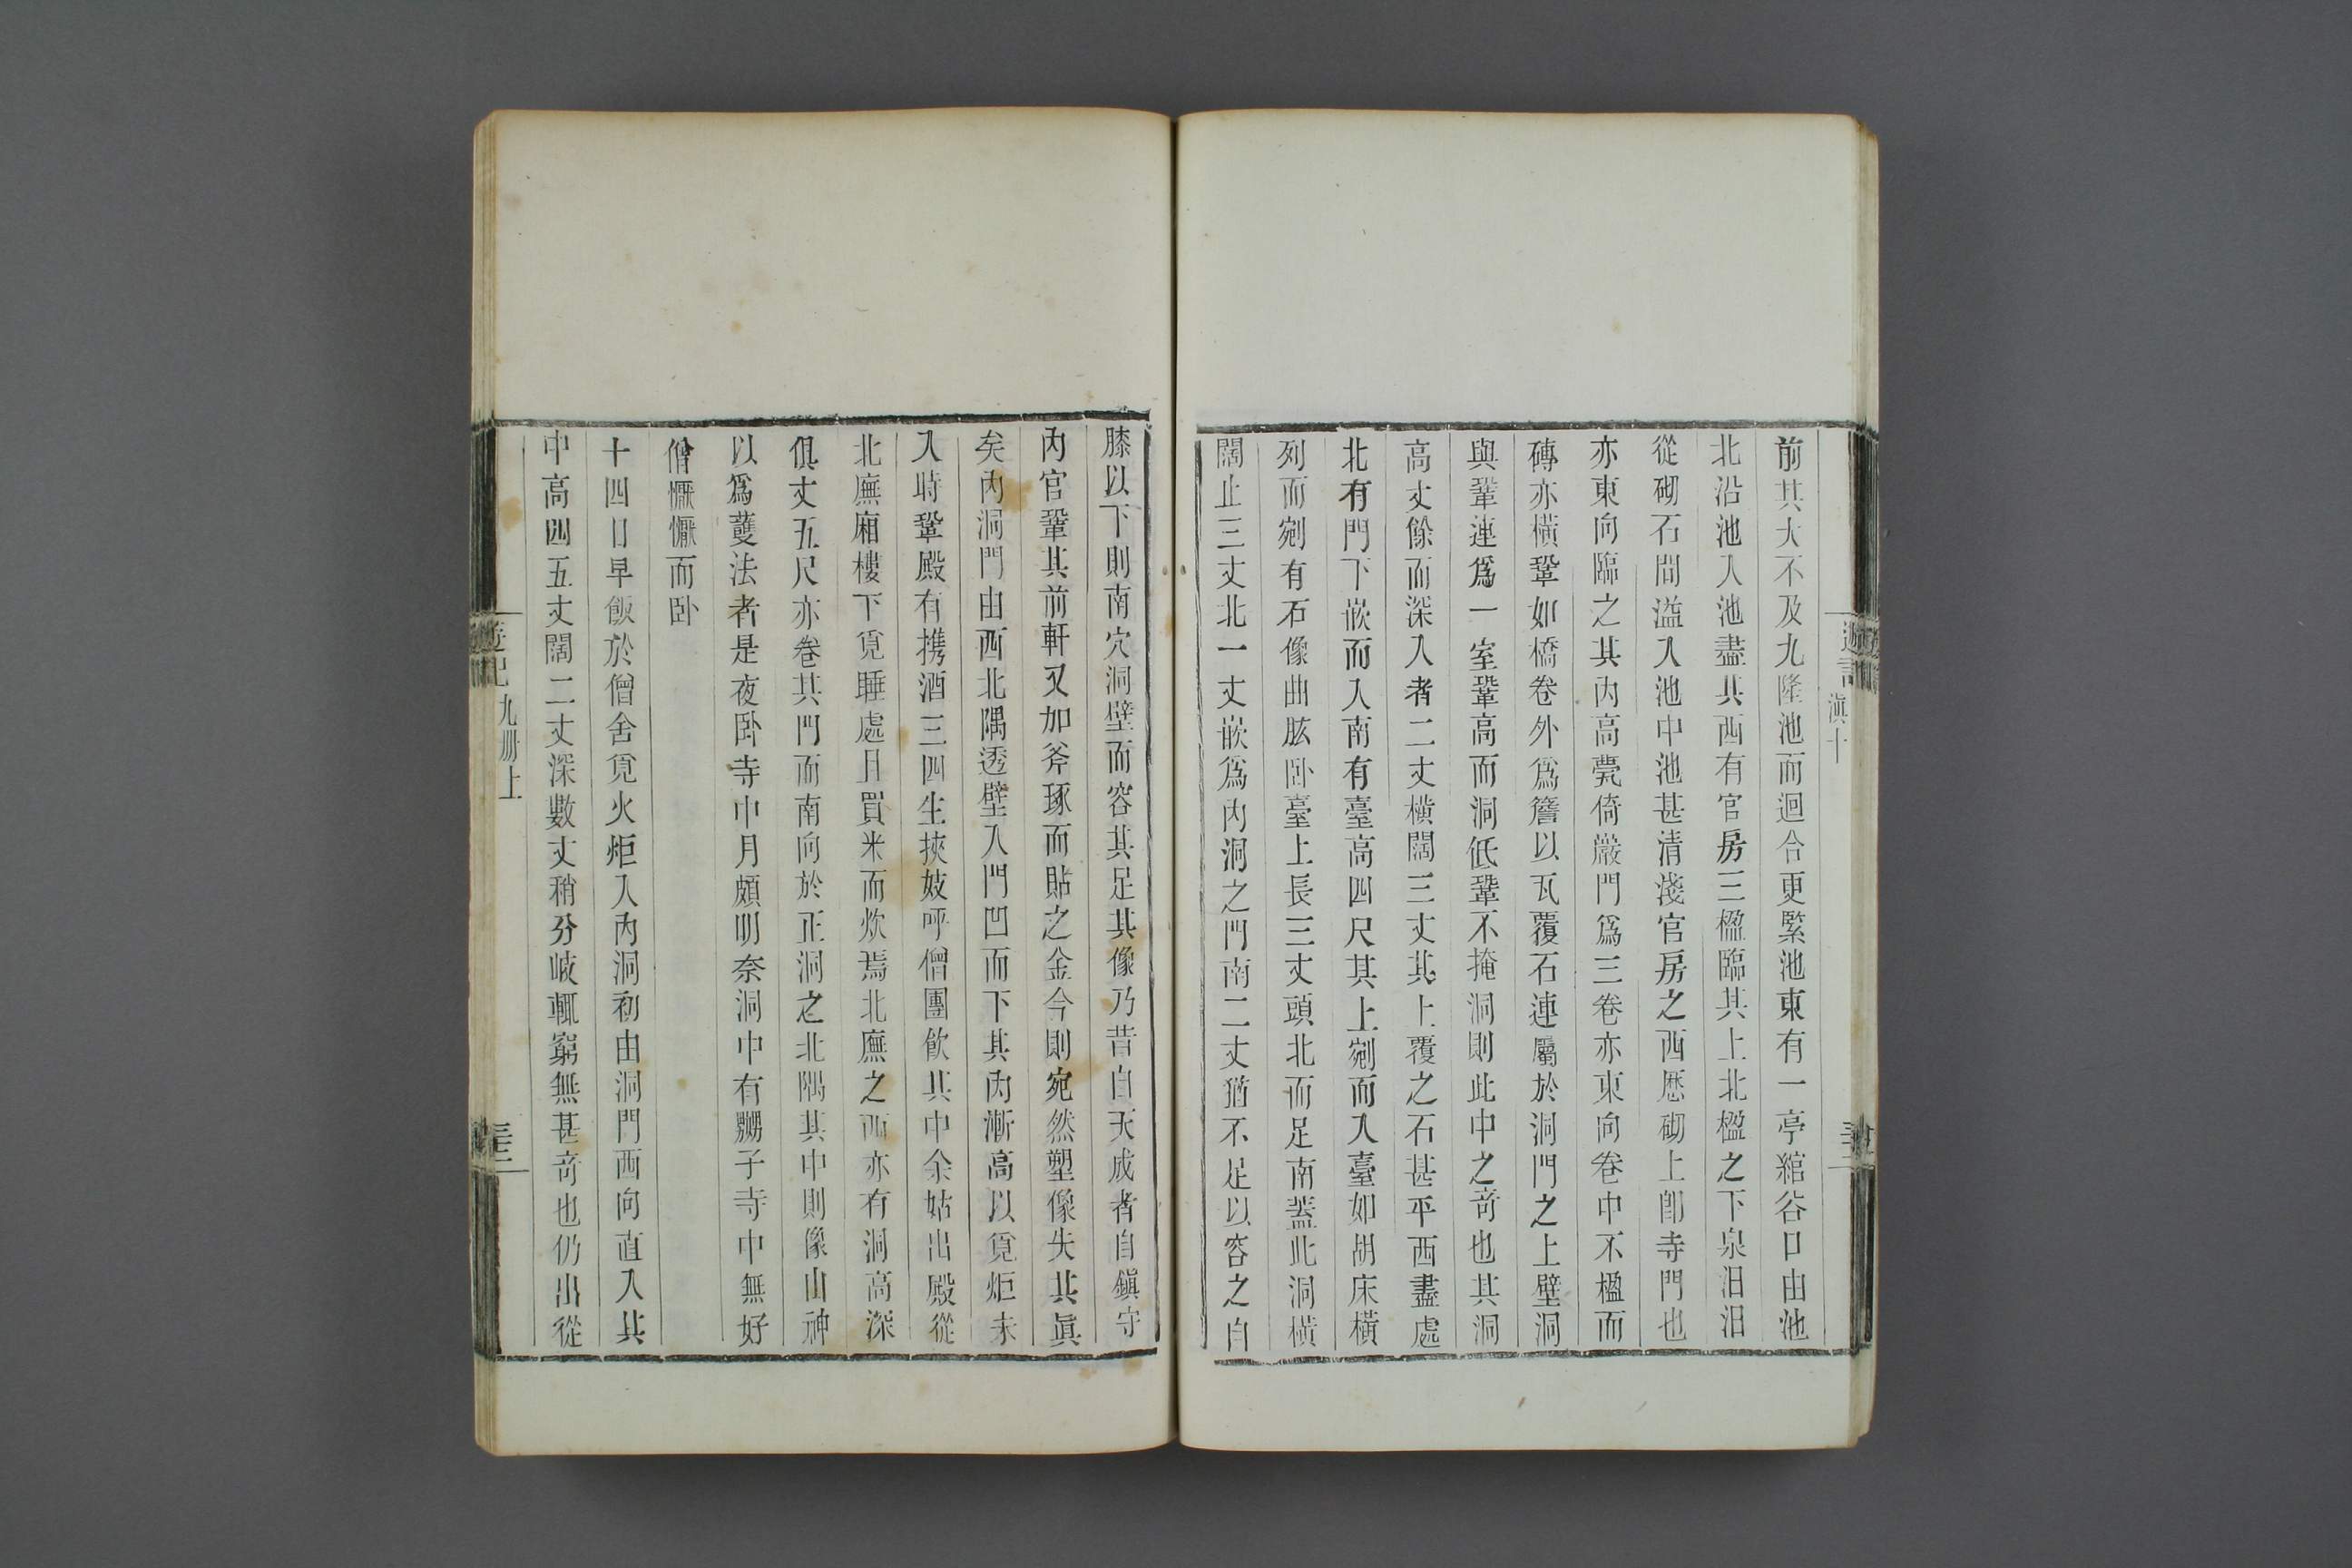 遊記
滇十
前其大不及九隆池而迴合更緊池東有一亭綰谷口由池
北沿池入池盡其西有官房三楹臨其上北楹之下泉汩汩
從砌石間溢入池中池甚清淺官房之西歷砌上卽寺門也
亦東向臨之其內高甍倚巖門爲三卷亦東向卷中不楹而
磚亦橫鞏如橋卷外爲簷以瓦覆石連屬於洞門之上壁洞
與鞏連爲一室鞏高而洞低鞏不掩洞則此中之竒也其洞
高丈餘而深入者二丈橫闊三丈其上覆之石甚平西盡處
北有門下嵌而入南有臺高四尺其上剜而入臺如胡床橫
列而剜有石像曲肱卧臺上長三丈頭北而足南蓋此洞橫
闊止三丈北一丈嵌爲內洞之門南二丈猶不足以容之自
膝以下則南穴洞壁而容其足其像乃昔自天成者自鎮守
內官鞏其前軒又加斧琢而貼之金今則宛然塑像失其眞
矣內洞門由西北隅透壁入門凹而下其內漸高以覓炬未
入時鞏殿有攜酒三四生挾妓呼僧團飲其中余姑出殿從
北廡廂樓下覓睡處且買米而炊焉北廡之西亦有洞高深
俱丈五尺亦卷其門而南向於正洞之北隅其中則像山神
以爲護法者是夜卧寺中月頗明奈洞中有嬲子寺中無好
僧懨懨而卧
十四日早飯於僧舍覓火炬入內洞初由洞門西向直入其
中高四五丈闊二丈深數丈稍分岐輒窮無甚奇也仍出從
遊記
九册上